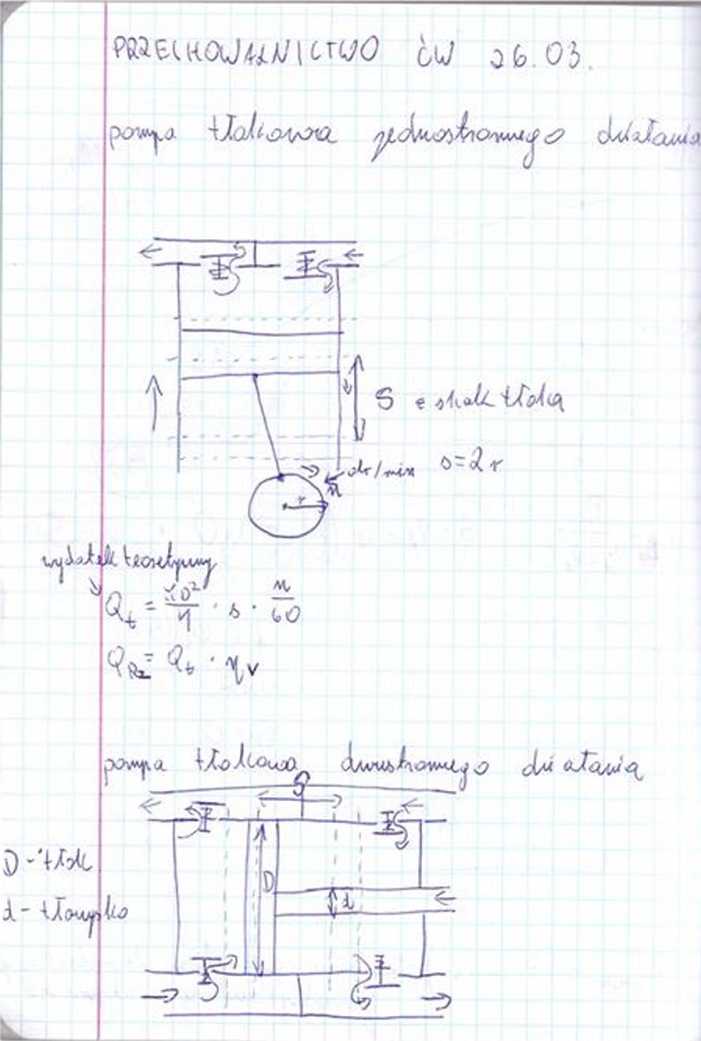 PRZECHOWALNICTWO ĆW 26.03.
pompa tłokowa jednostronnego działania
S = skok tłoka
obr/min s=2r
n
r
wydatek teoretyczny
Qt = πD²/4 · s · n/60
QRz = Qt · ηv
pompa tłokowa dwustronnego działania
S
D - tłok
D
d
d - tłoczysko